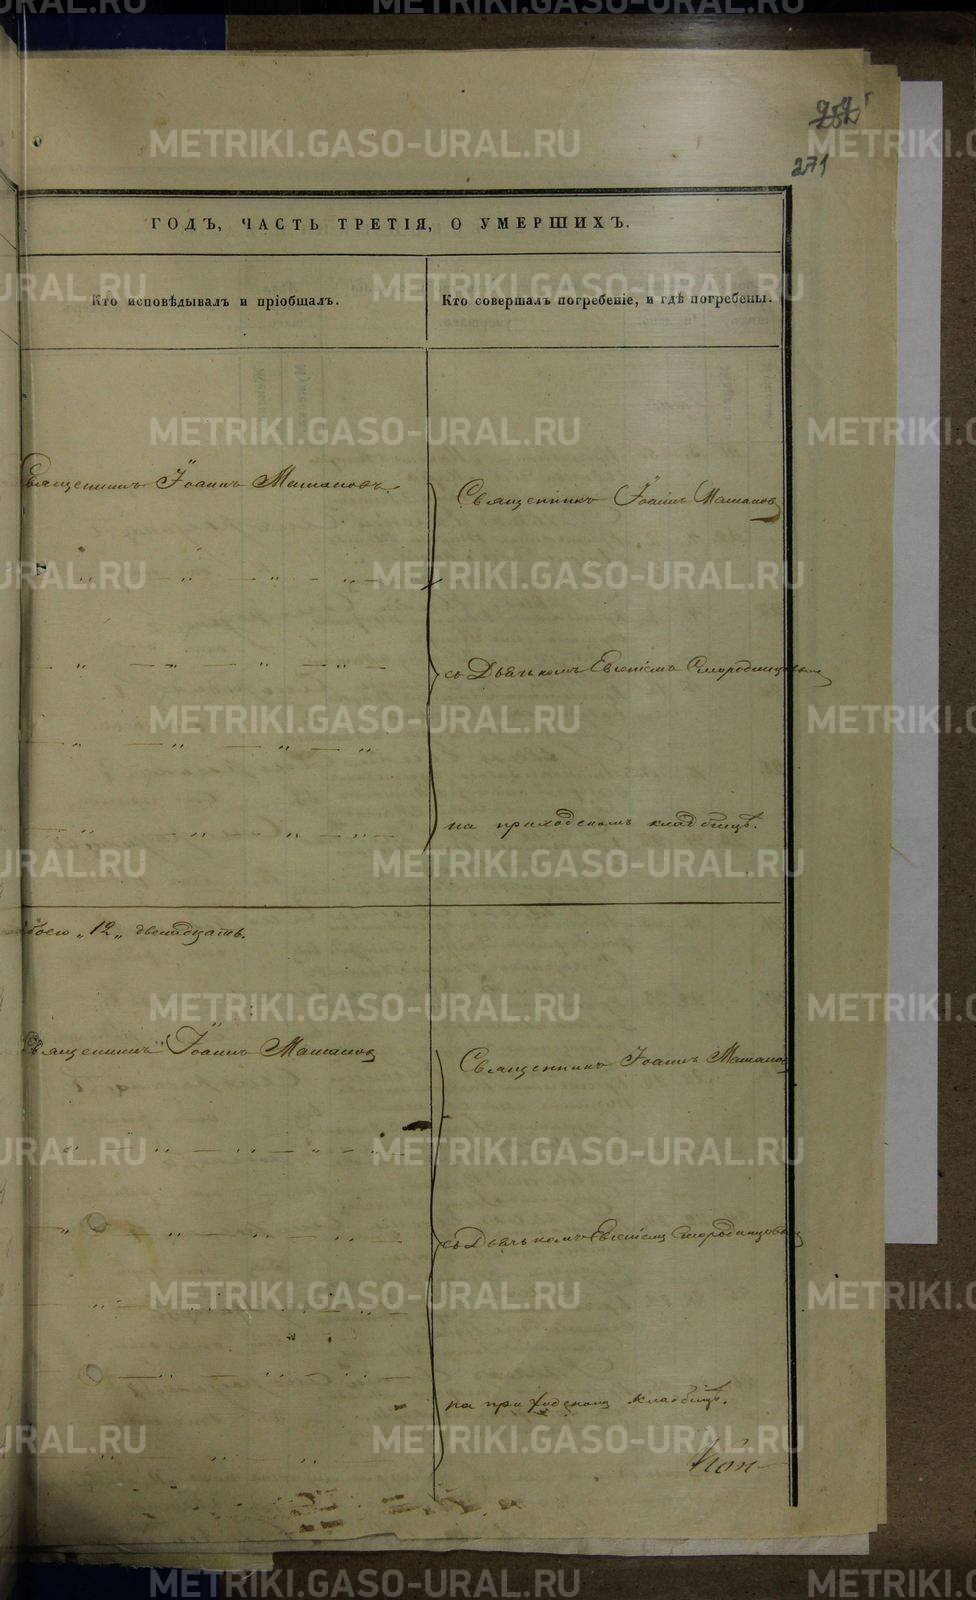 271
ГОДЪ, ЧАСТЬ ТРЕТІЯ, О УМЕРШИХЪ.
Кто исповѣдывалъ и пріобщалъ.
Кто совершалъ погребеніе, и гдѣ погребены.
Священникъ Іоаннъ Матановъ.
Священникъ Іоаннъ Матановъ
съ Дьячькомъ Евгеніемъ Смородинцовымъ
на приходскомъ кладбищѣ.
„12„ двенадцать.
Священникъ Іоаннъ Матановъ
Священникъ Іоаннъ Матановъ
съ Дьячькомъ Евгеніемъ Смородинцовымъ
на приходскомъ кладбищѣ.
METRIKI.GASO-URAL.RU